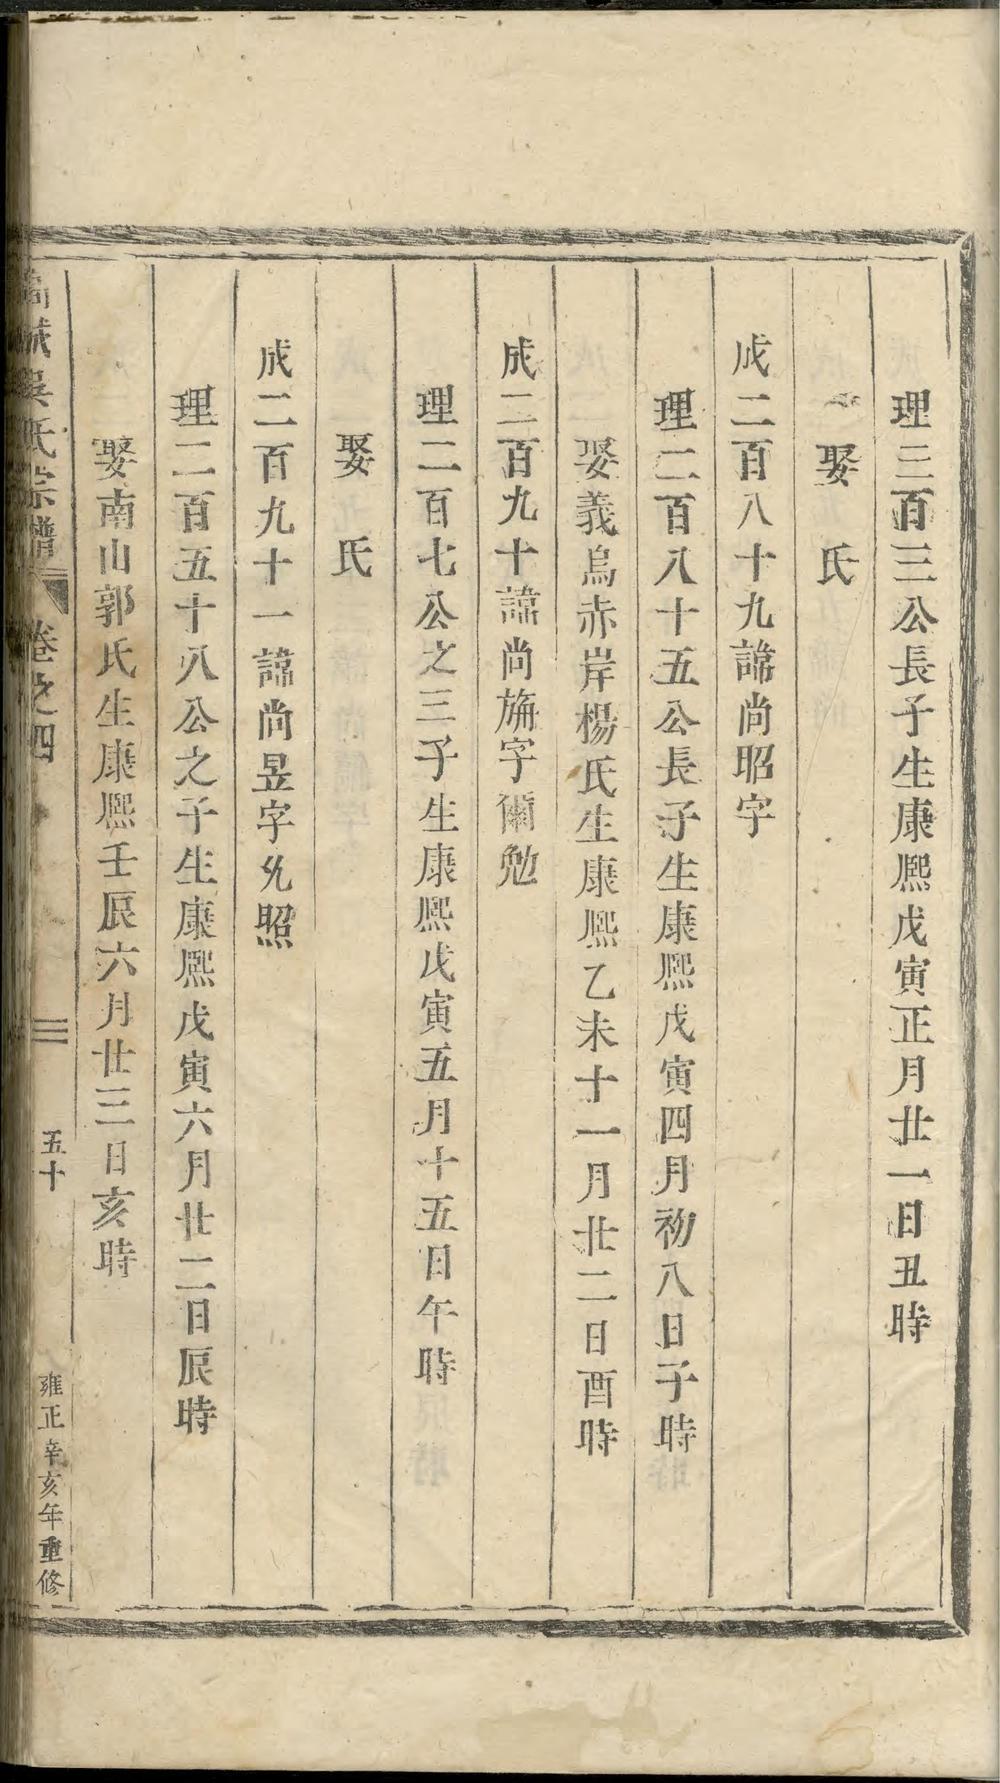 理三百三公長子生康熈戊寅正月廿一日丑時
娶　氏
成二百八十九諱尚昭字
理二百八十五公長子生康熈戊寅四月初八日子時
娶義烏赤岸楊氏生康熈乙未十一月廿二日酉時
成二百九十諱尚旃字爾勉
理二百七公之三子生康熈戊寅五月十五日午時
娶　氏
成二百九十一諱尚昱字允照
理二百五十八公之子生康熈戊寅六月廿二日辰時
娶南山郭氏生康熈壬辰六月廿三日亥時
吳氏宗譜　卷之四　五十　雍正辛亥年重修